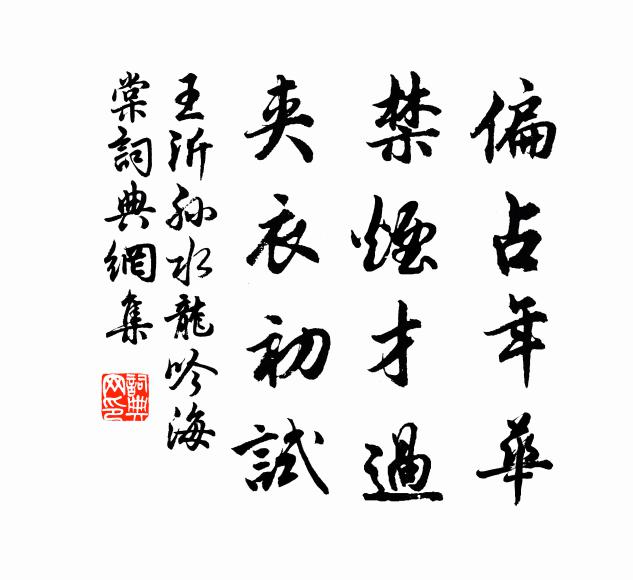 偏占年華
禁煙才過
夾衣初試
王沂孫水龍吟海
棠詞典網集
詞典
网印